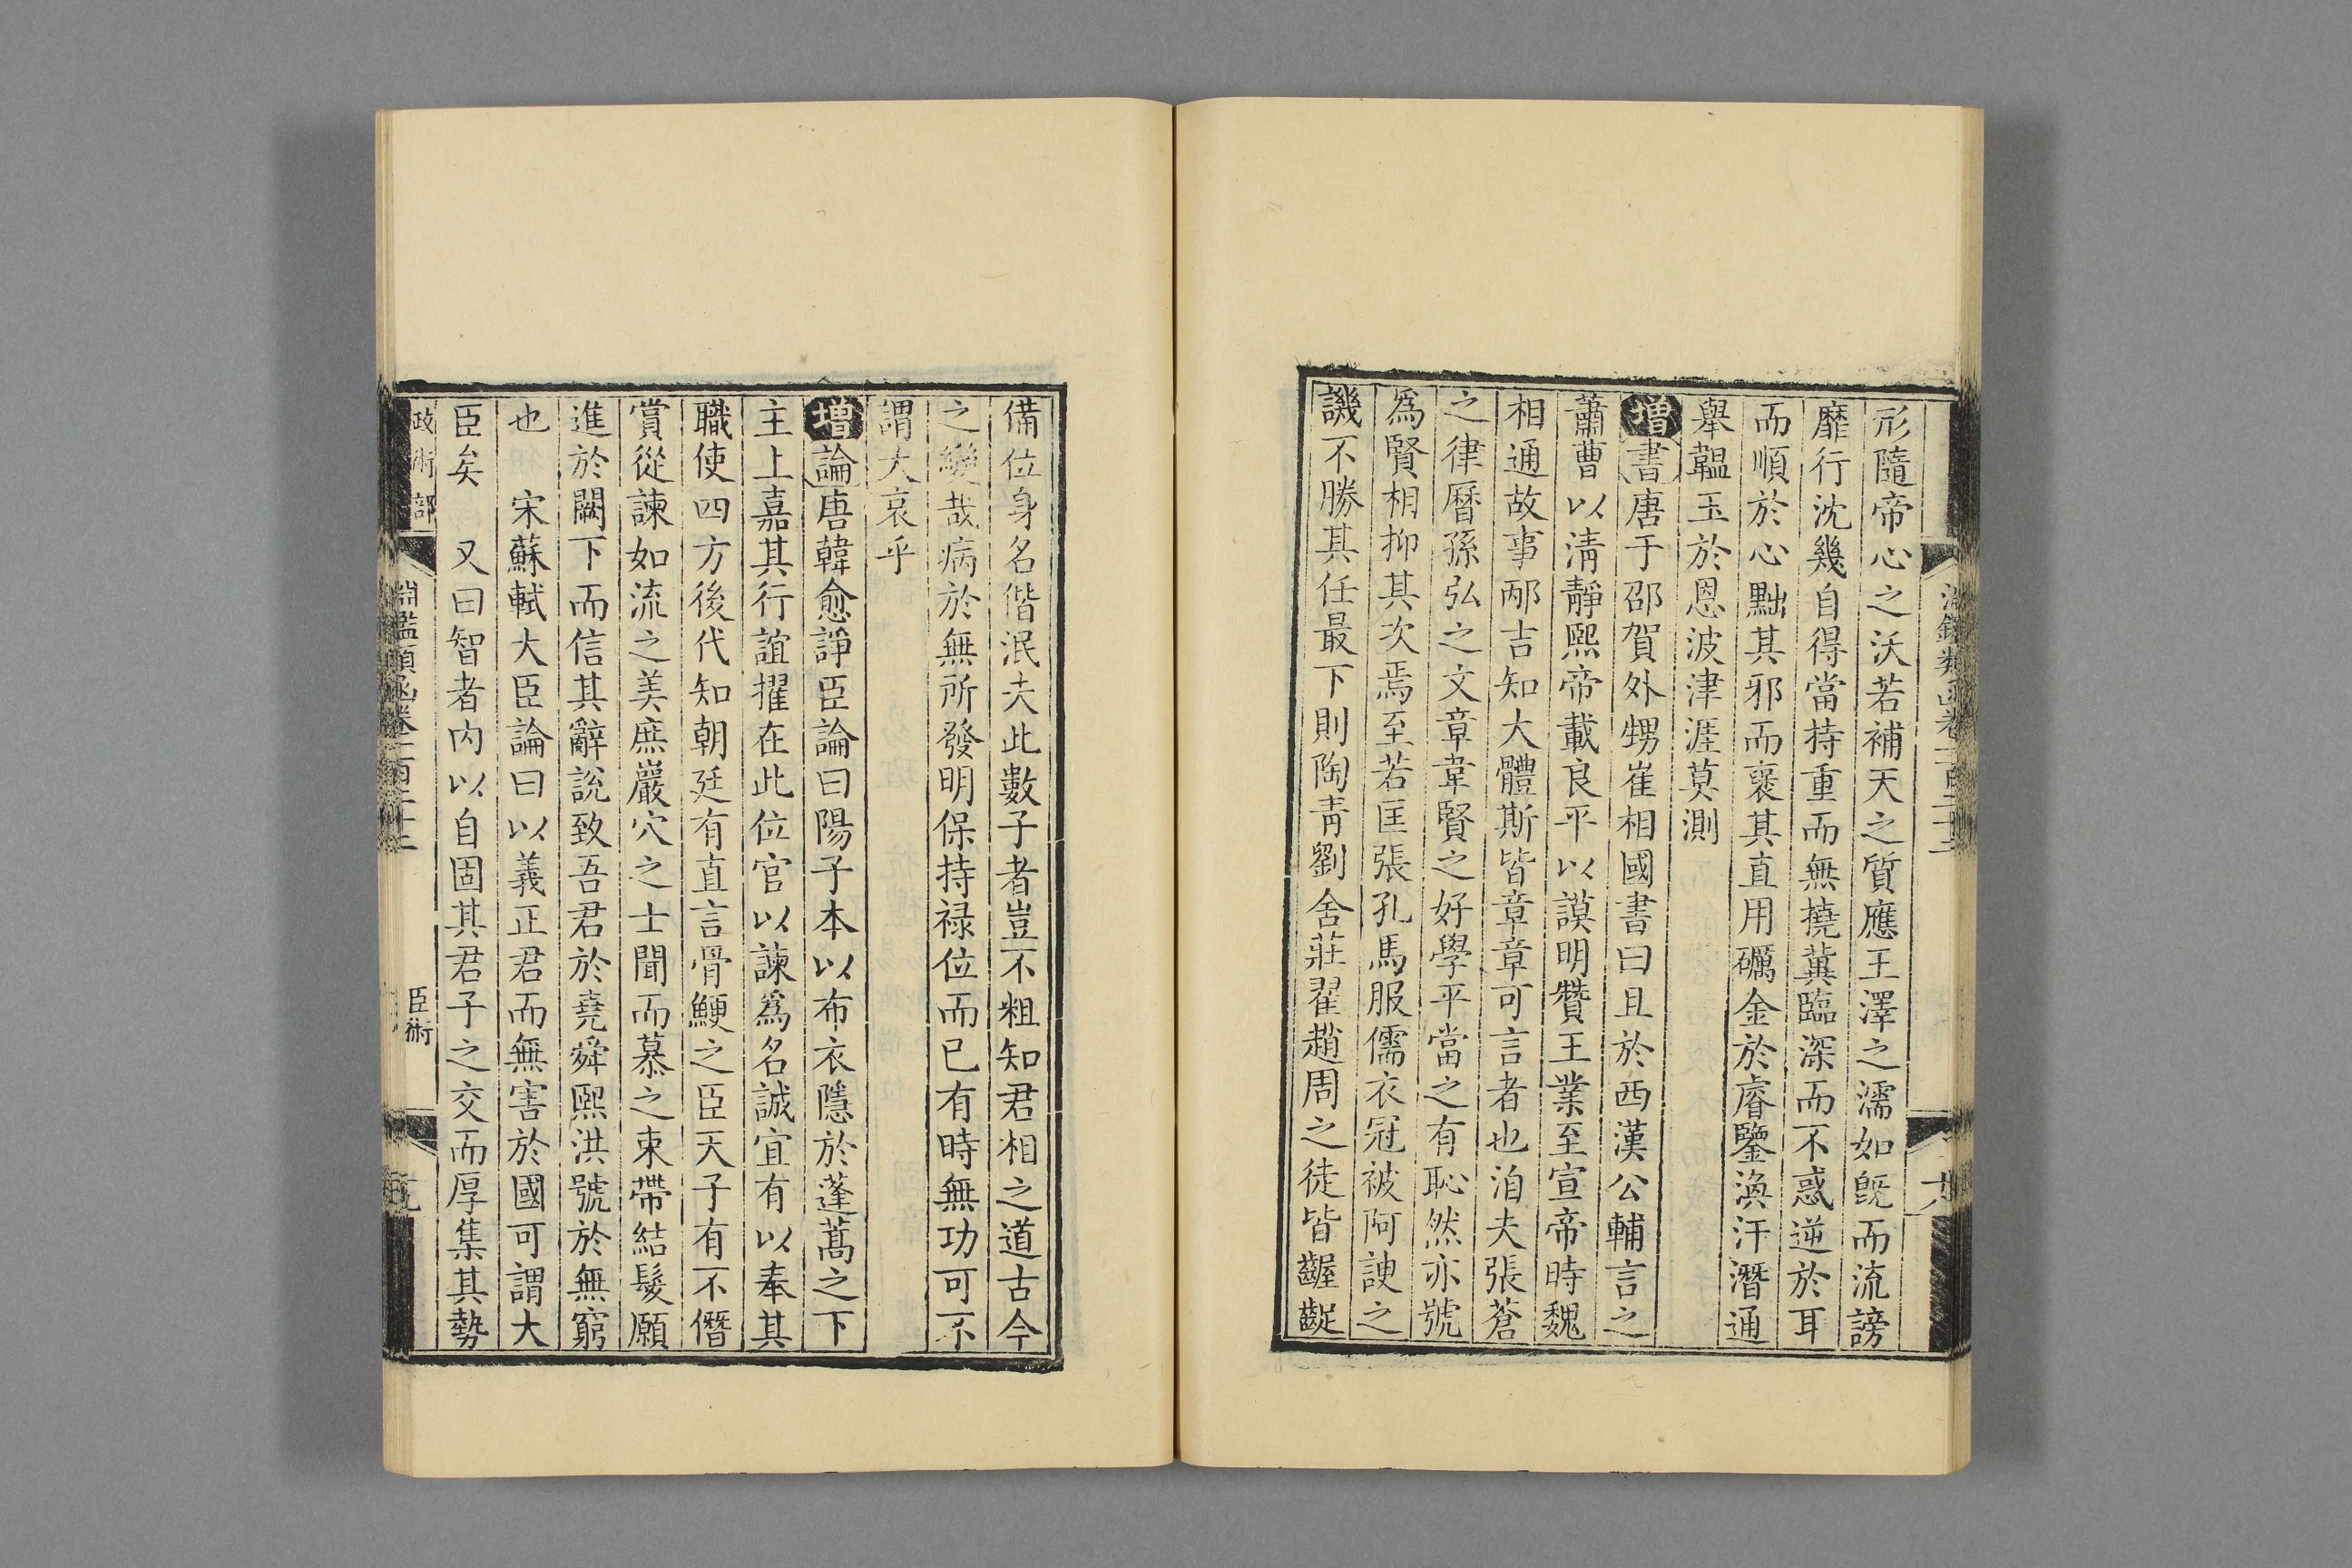 形隨帝心之沃若補天之質應王澤之濡如旣而流謗
靡行沈幾自得當持重而無撓冀臨深而不惑逆於耳
而順於心黜其邪而褒其直用礪金於睿鑒渙汗潛通
舉韞玉於恩波津涯莫測
增書唐于邵賀外甥崔相國書曰且於西漢公輔言之
蕭曹以淸靜熙帝載良平以謨明贊王業至宣帝時魏
相通故事邴吉知大體斯皆章章可言者也洎夫張蒼
之律曆孫弘之文章韋賢之好學平當之有恥然亦號
爲賢相抑其次焉至若匡張孔馬服儒衣冠被阿諛之
譏不勝其任最下則陶靑劉舍莊翟趙周之徒皆齷齪
備位身名偕泯夫此數子者豈不粗知君相之道古今
之變哉病於無所發明保持祿位而已有時無功可不
謂大哀乎
增論唐韓愈諍臣論曰陽子本以布衣隱於蓬蒿之下
主上嘉其行誼擢在此位官以諫爲名誠宜有以奉其
職使四方後代知朝廷有直言骨鯁之臣天子有不僭
賞從諫如流之美庶巖穴之士聞而慕之束帶結髮願
進於闕下而信其辭說致吾君於堯舜熙洪號於無窮
也　宋蘇軾大臣論曰以義正君而無害於國可謂大
臣矣　又曰智者內以自固其君子之交而厚集其勢
政術部
淵鑑類函卷一百二十三
臣術